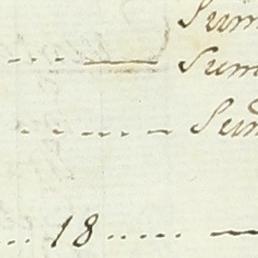 Sum
.... —— Sum
. . - . . - .. — Sum
... 18 ..... —